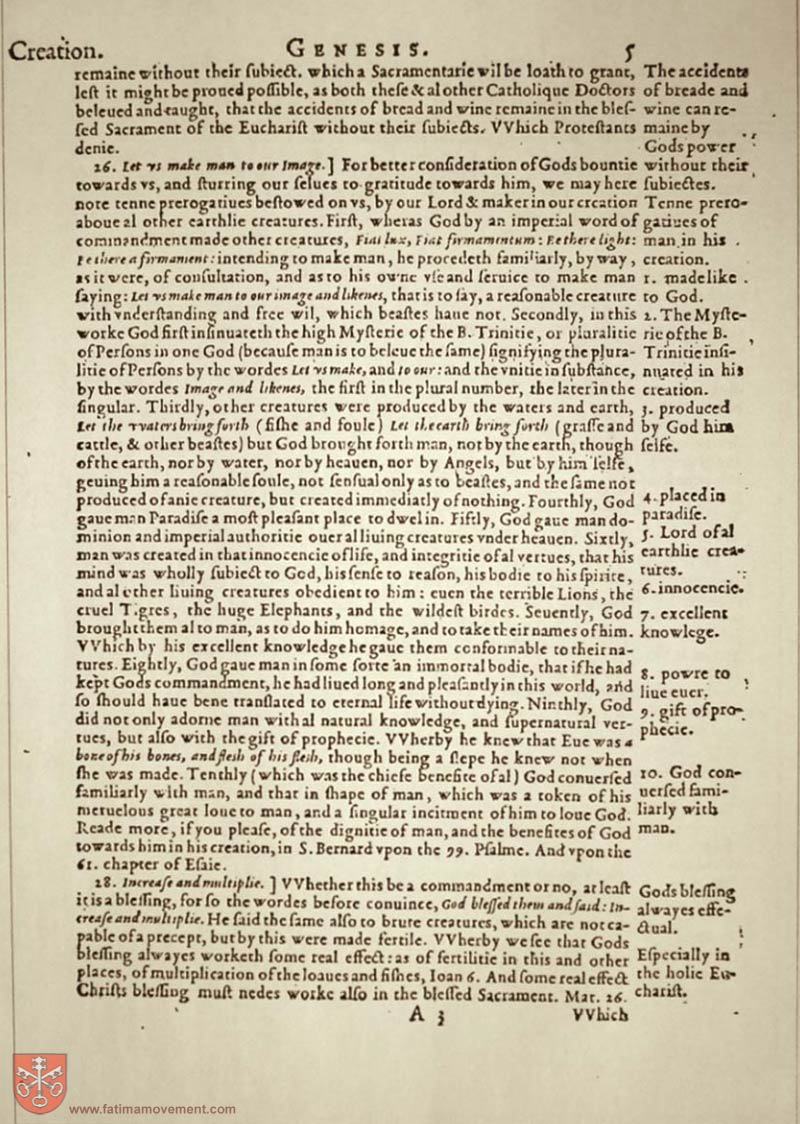 Creation.
GENESIS.
5
remaine without their ſubiect. which a Sacramentarie wil be loath to grant,
leſt it might be proued poſſible, as both theſe & al other Catholique Doctors
beleued and taught, that the accidents of bread and wine remaine in the bleſ-
ſed Sacrament of the Euchariſt without their ſubiects. VVhich Proteſtants
denie.
26. Let vs make man to our Image.] For better conſideration of Gods bountie
towards vs, and ſturring our ſelues to gratitude towards him, we may here
note tenne prerogatiues beſtowed on vs, by our Lord & maker in our creation
aboue al other earthlie creatures. Firſt, wheras God by an imperial word of
commandment made other creatures, Fiat lux, Fiat firmamentum: Be there light:
Be there a firmament: intending to make man, he procedeth familiarly, by way,
as it were, of conſultation, and as to his owne vſe and ſeruice to make man
ſaying: Let vs make man to our image and likenes, that is to ſay, a reaſonable creature
with vnderſtanding and free wil, which beaſtes haue not. Secondly, in this
worke God firſt inſinuateth the high Myſterie of the B. Trinitie, or pluralitie
of Perſons in one God (becauſe man is to beleue the ſame) ſignifying the plura-
litie of Perſons by the wordes Let vs make, and to our: and the vnitie in ſubſtance,
by the wordes Image and likenes, the firſt in the plural number, the later in the
ſingular. Thirdly, other creatures were produced by the waters and earth,
Let the vvaters bring forth (fiſhe and foule) Let the earth bring forth (graſſe and
cattle, & other beaſtes) but God brought forth man, not by the earth, though
of the earth, nor by water, nor by heauen, nor by Angels, but by him ſelfe,
geuing him a reaſonable ſoule, not ſenſual only as to beaſtes, and the ſame not
produced of anie creature, but created immediatly of nothing. Fourthly, God
gaue man Paradiſe a moſt pleaſant place to dwel in. Fiftly, God gaue man do-
minion and imperial authoritie ouer al liuing creatures vnder heauen. Sixtly,
man was created in that innocencie of life, and integritie of al vertues, that his
mind was wholly ſubiect to God, his ſenſe to reaſon, his bodie to his ſpirite,
and al other liuing creatures obedient to him: euen the terrible Lions, the
cruel Tigres, the huge Elephants, and the wildeſt birdes. Seuently, God
brought them al to man, as to do him homage, and to take their names of him.
VVhich by his excellent knowledge he gaue them conformable to their na-
tures. Eightly, God gaue man in ſome ſorte an immortal bodie, that if he had
kept Gods commandment, he had liued long and pleaſantly in this world, and
ſo ſhould haue bene tranſlated to eternal life without dying. Ninthly, God
did not only adorne man with al natural knowledge, and ſupernatural ver-
tues, but alſo with the gift of prophecie. VVherby he knew that Eue was a
bone of his bones, and fleſh of his fleſh, though being a ſlepe he knew not when
ſhe was made. Tenthly (which was the chiefe benefite of al) God conuerſed
familiarly with man, and that in ſhape of man, which was a token of his
meruelous great loue to man, and a ſingular incitment of him to loue God.
Reade more, if you pleaſe, of the dignitie of man, and the benefites of God
towards him in his creation, in S. Bernard vpon the 99. Pſalme. And vpon the
61. chapter of Eſaie.
28. Increaſe and multiplie.] VVhether this be a commandment or no, at leaſt
it is a bleſſing, for ſo the wordes before conuince, God bleſſed them and ſaid: In-
creaſe and multiplie. He ſaid the ſame alſo to brute creatures, which are not ca-
pable of a precept, but by this were made fertile. VVherby we ſee that Gods
bleſſing alwayes worketh ſome real effect: as of fertilitie in this and other
places, of multiplication of the loaues and fiſhes, Ioan 6. And ſome real effect
Chriſts bleſſing muſt nedes worke alſo in the bleſſed Sacrament. Mat. 26.
A 3
VVhich
The accidents
of breade and
wine can re-
maine by
Gods power
without their
ſubiectes.
Tenne prero-
gatiues of
man in his
creation.
1. made like
to God.
2. The Myſte-
rie of the B.
Trinitie inſi-
nuated in his
creation.
3. produced
by God him
ſelfe.
4. placed in
paradiſe.
5. Lord of al
earthlie crea-
tures.
6. innocencie.
7. excellent
knowlege.
8. powre to
liue euer.
9. gift of pro-
phecie.
10. God con-
uerſed fami-
liarly with
man.
Gods bleſſing
alwayes effe-
ctual.
Eſpecially in
the holie Eu-
chariſt.
www.fatimamovement.com